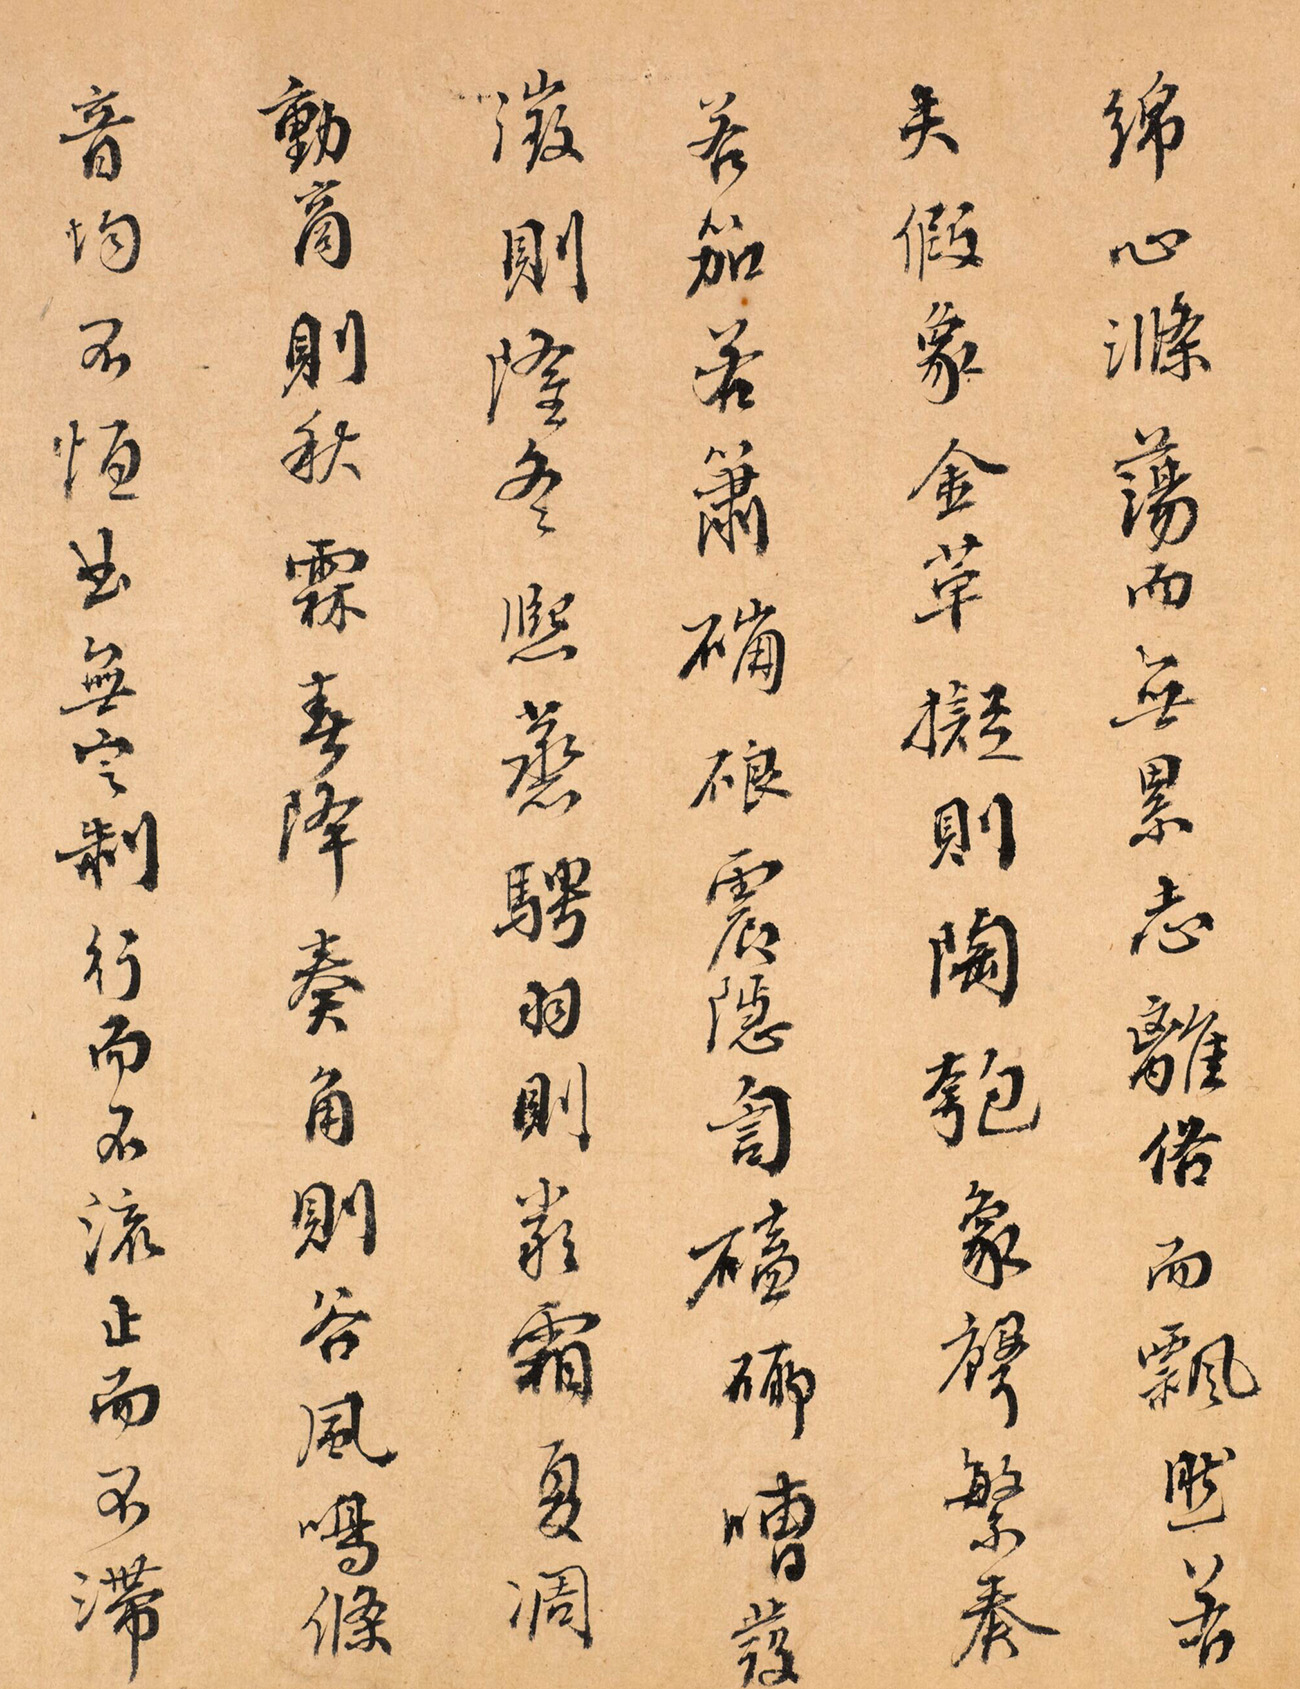 綿心滌蕩而無累志離俗而飄然若
夫假象金革擬則陶匏衆聲繁奏
若笳若簫硠震隱訇磕嘈發
徵則隆冬熙蒸騁羽則嚴霜夏凋
動商則秋霖春降奏角則谷風鳴條
音均不恒曲無定制行而不流止而不滯